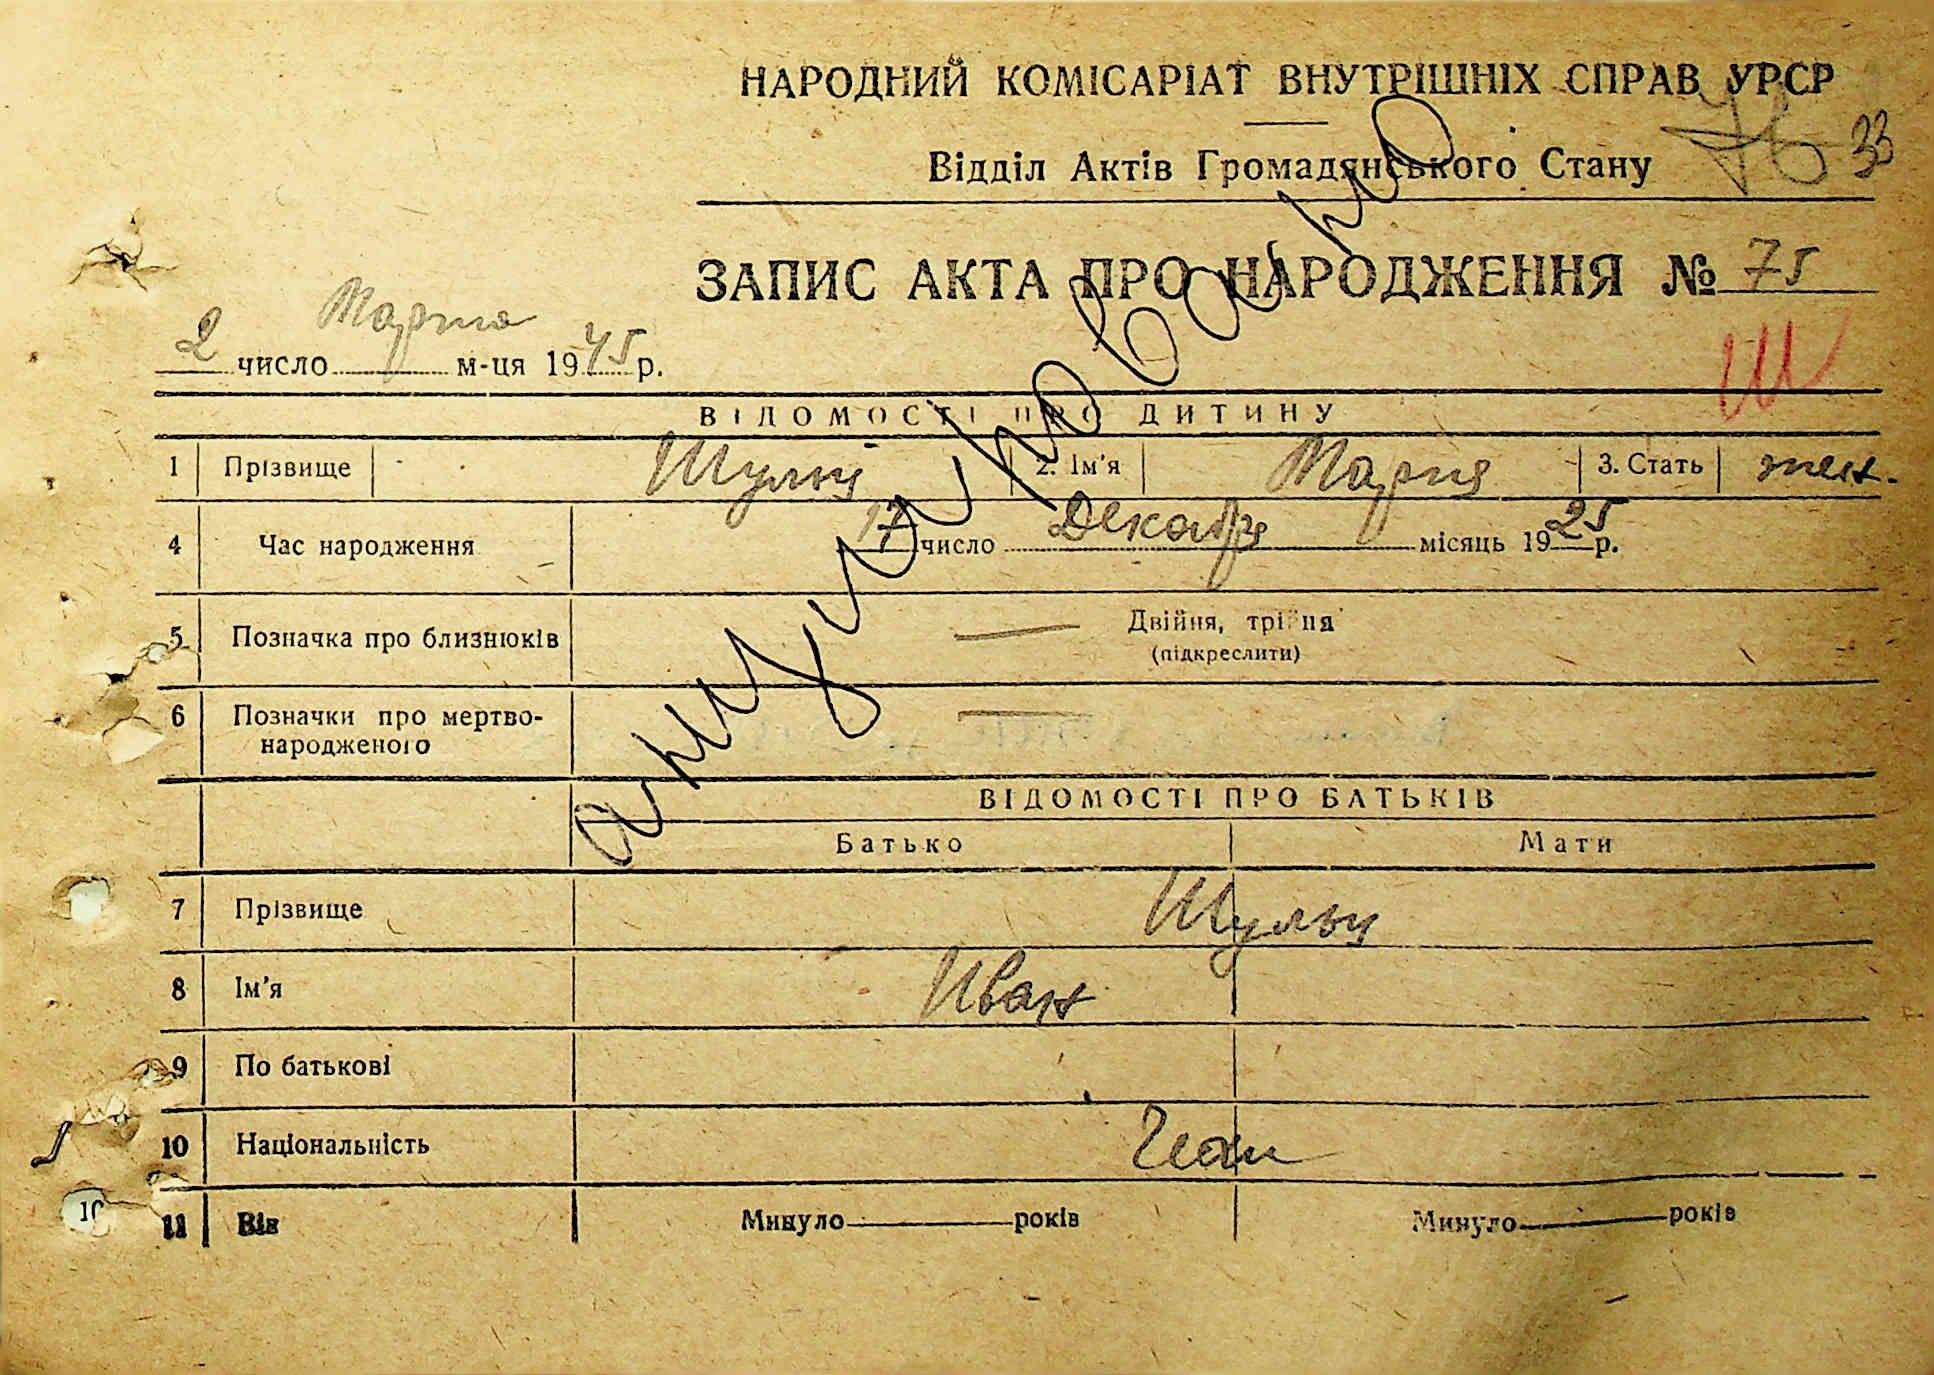 НАРОДНИЙ КОМІСАРІАТ ВНУТРІШНІХ СПРАВ УРСР
Відділ Актів Громадянського Стану 33
ЗАПИС АКТА ПРО НАРОДЖЕННЯ № 75
2 число Марта м-ця 1945 р.
Ш
ВІДОМОСТІ ПРО ДИТИНУ
1 Прізвище Шульц 2. Ім'я Мария 3. Стать жен.
4 Час народження 17 число Декабря місяць 1925 р.
5 Позначка про близнюків — Двійня, трійня
(підкреслити)
6 Позначки про мертво-
народженого —
анулировано
ВІДОМОСТІ ПРО БАТЬКІВ
Батько Мати
7 Прізвище Шульц
8 Ім'я Иван
9 По батькові
10 Національність
11 Вік Минуло — років Минуло — років
10